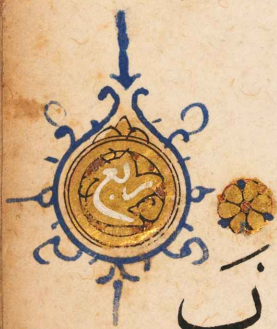 ربع
نَ